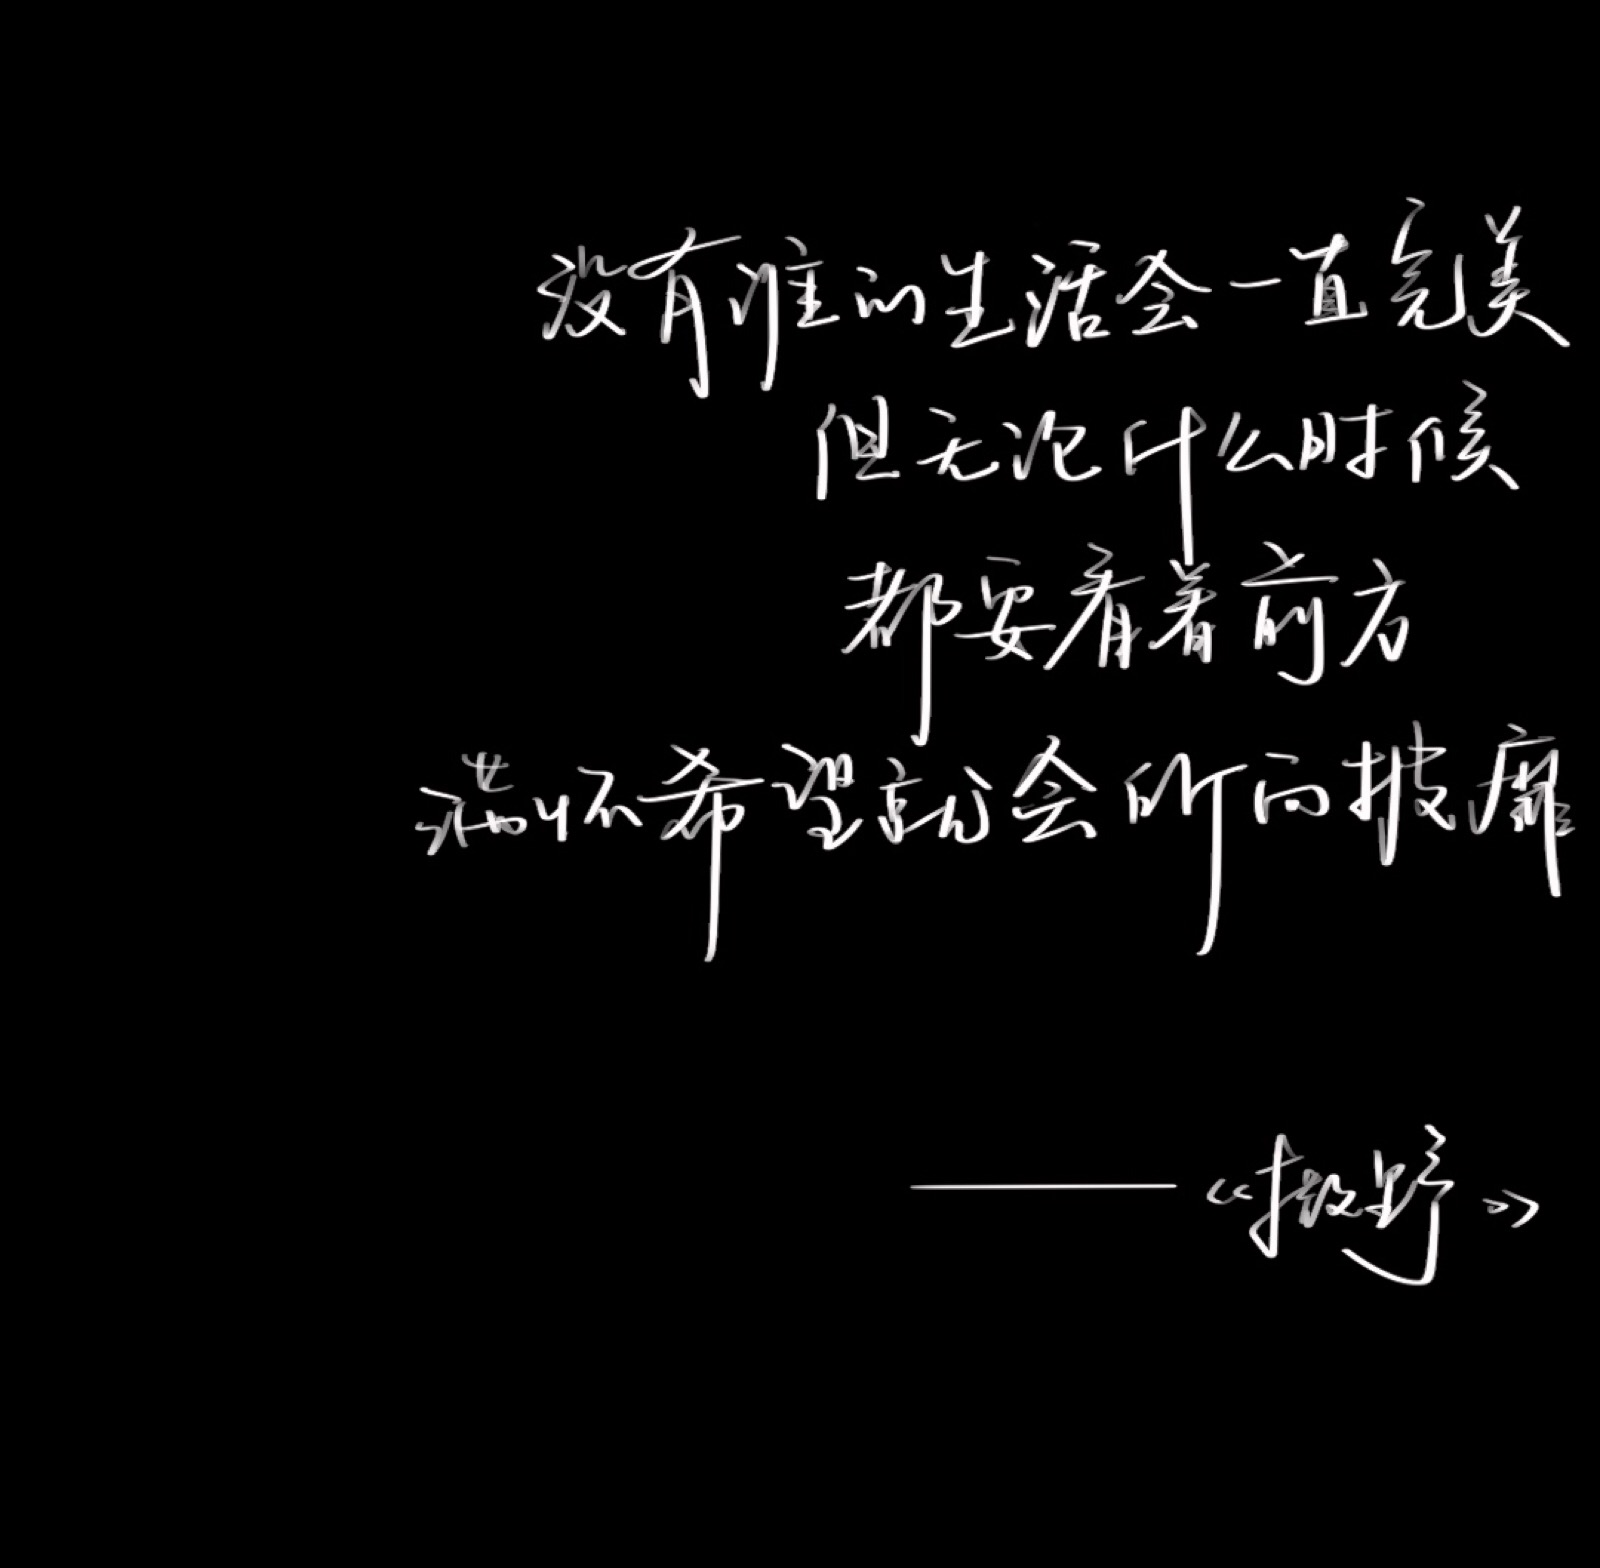 没有谁的生活会一直完美
但无论什么时候
都要看着前方
满怀希望就会所向披靡
——《撒野》